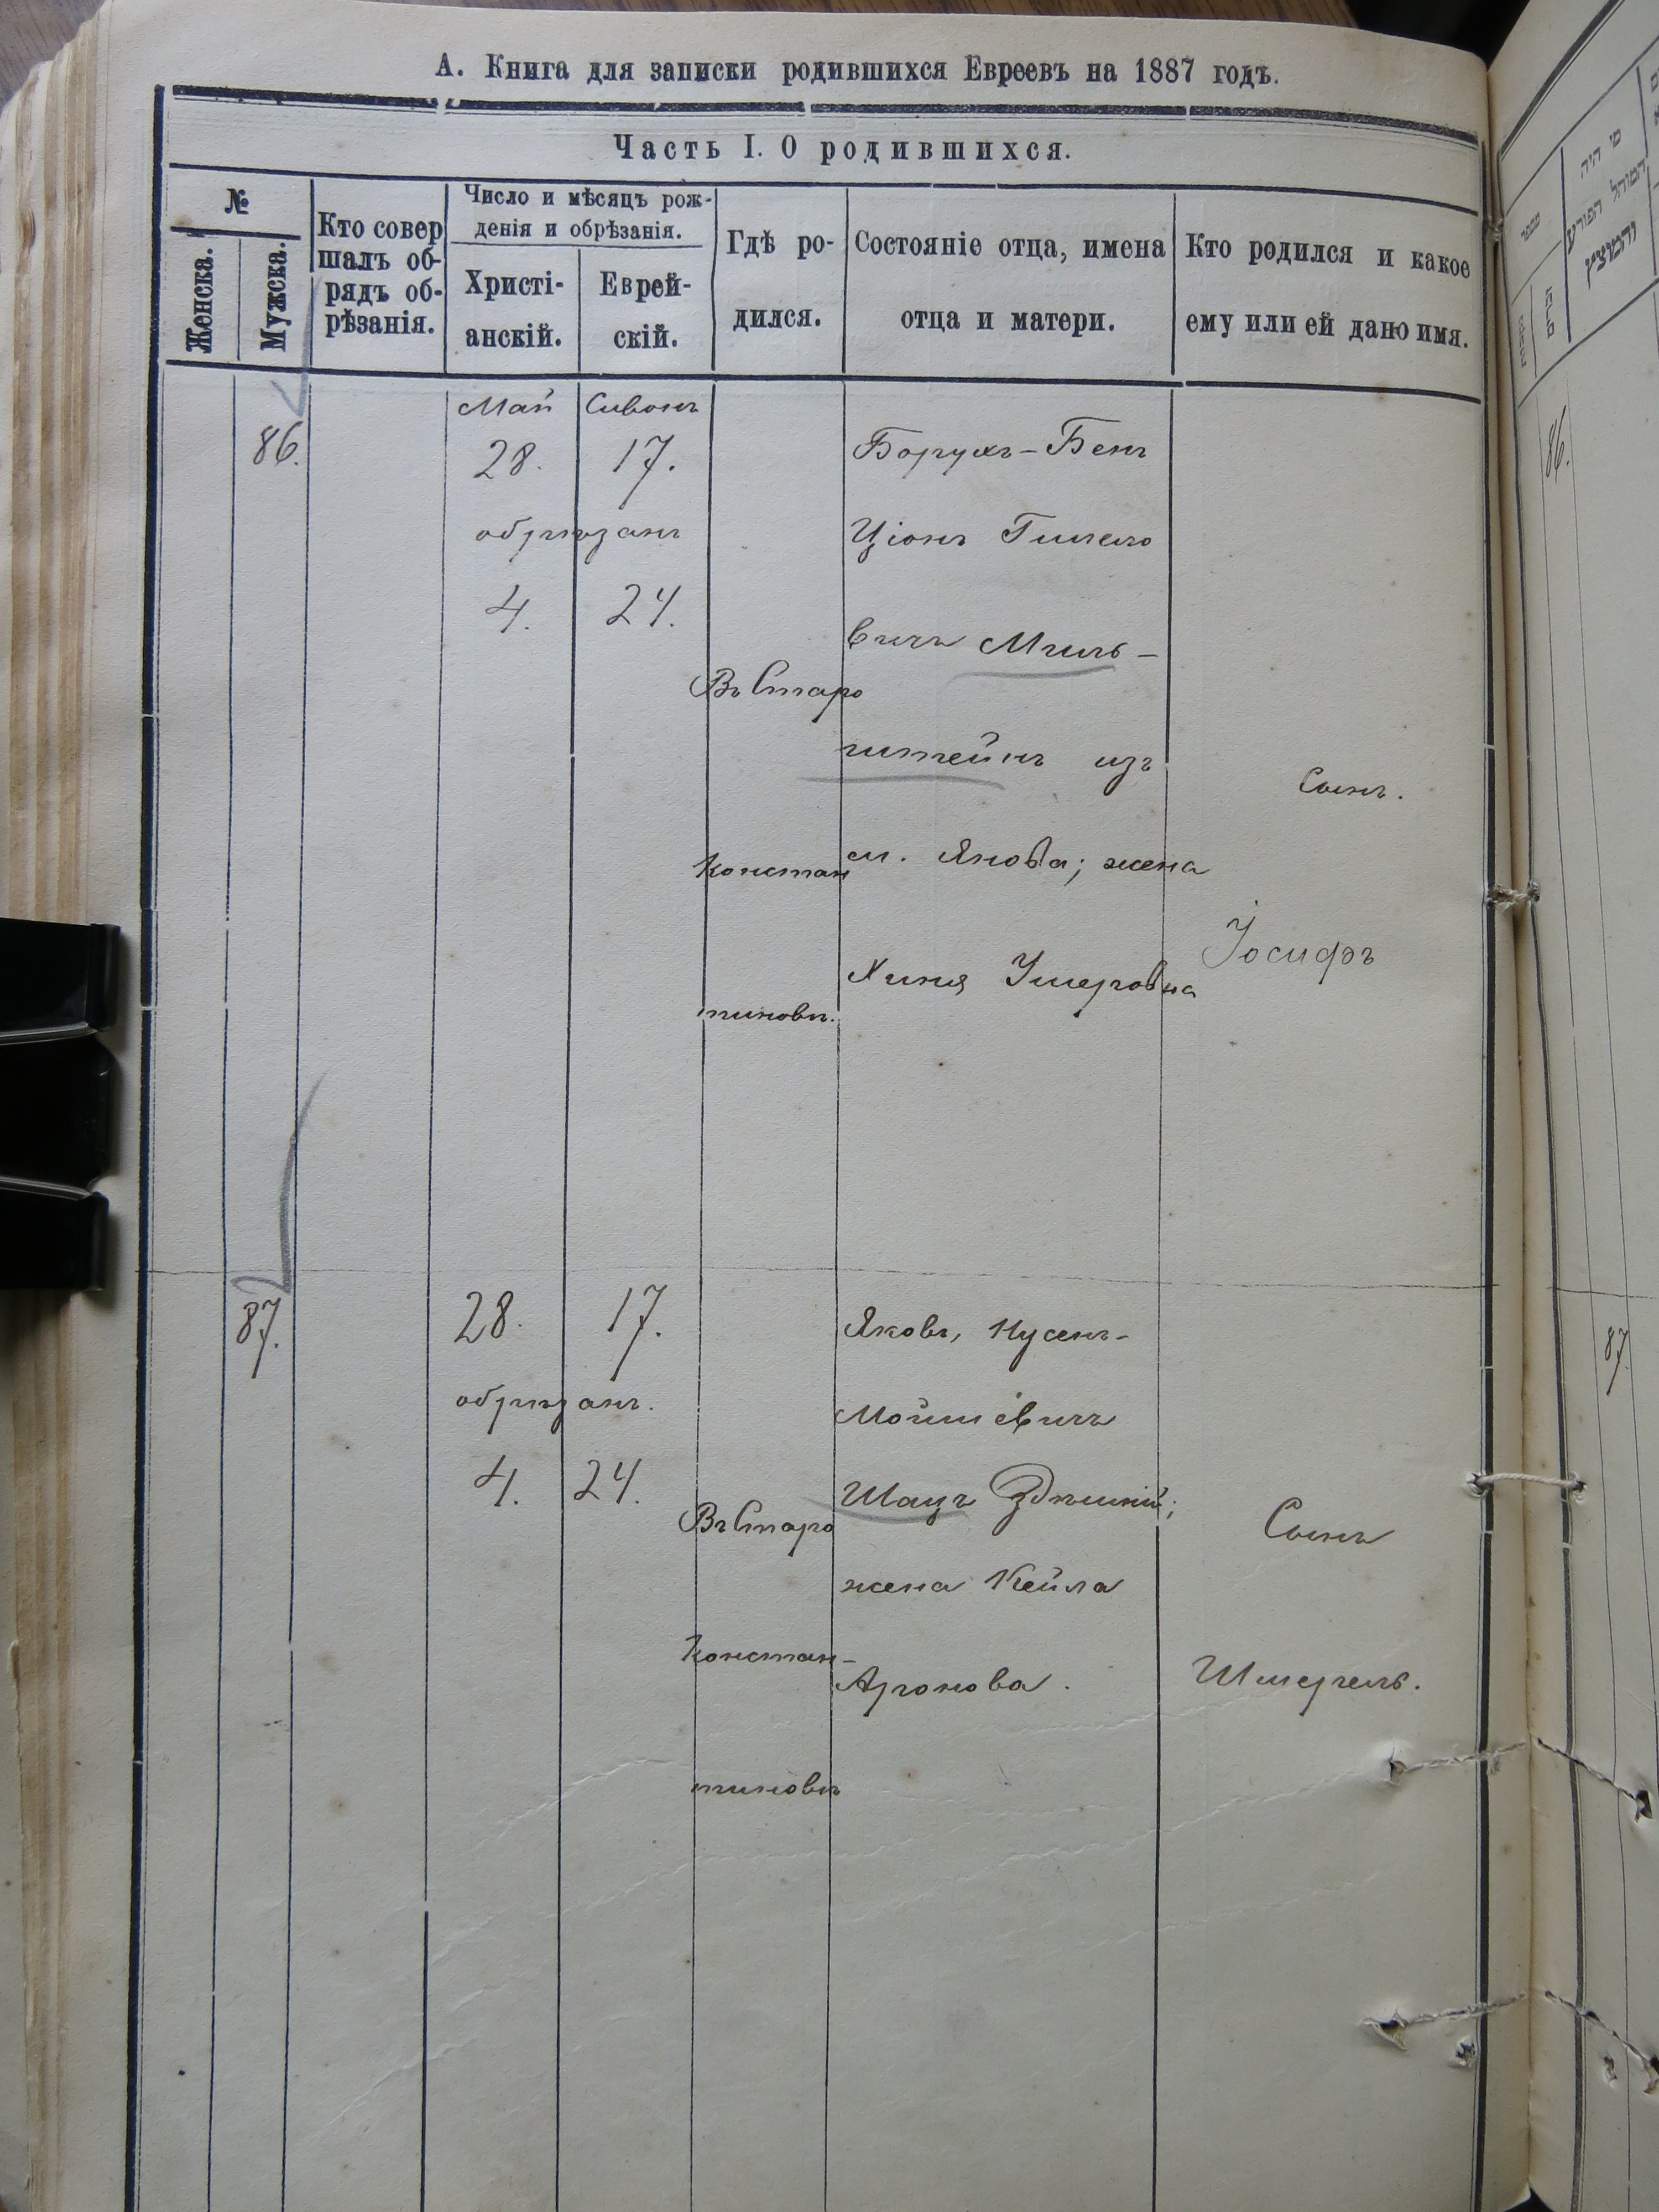 А. Книга для записки родившихся Евреевъ на 1887 годъ.
Часть I. О родившихся.
№
Женска.
Мужска.
Кто совер
шалъ об-
рядъ об-
рѣзанія.
Число и мѣсяцъ рож-
денія и обрѣзанія.
Христі-
анскій.
Еврей-
скій.
Гдѣ ро-
дился.
Состояніе отца, имена
отца и матери.
Кто родился и какое
ему или ей дано имя.
86.
Май
28.
обрѣзанъ
4.
Сивонъ
17.
24.
Въ Старо
констан
тиновѣ.
Борухъ-Бенъ
Ціонъ
вичъ Миль-
штейнъ изъ
м. Янова; жена
Хиня Ушеровна
Сынъ.
Іосифъ
87.
28.
обрѣзанъ.
4.
17.
24.
Въ Старо
констан-
тиновѣ
Яковъ, Нусенъ-
Мошковичъ
Шацъ Здѣшній;
жена Кейла
Аронова.
Сынъ
Шмерель.
מי היה
המוהל הפורע
והמוצץ
מספר
86.
87.